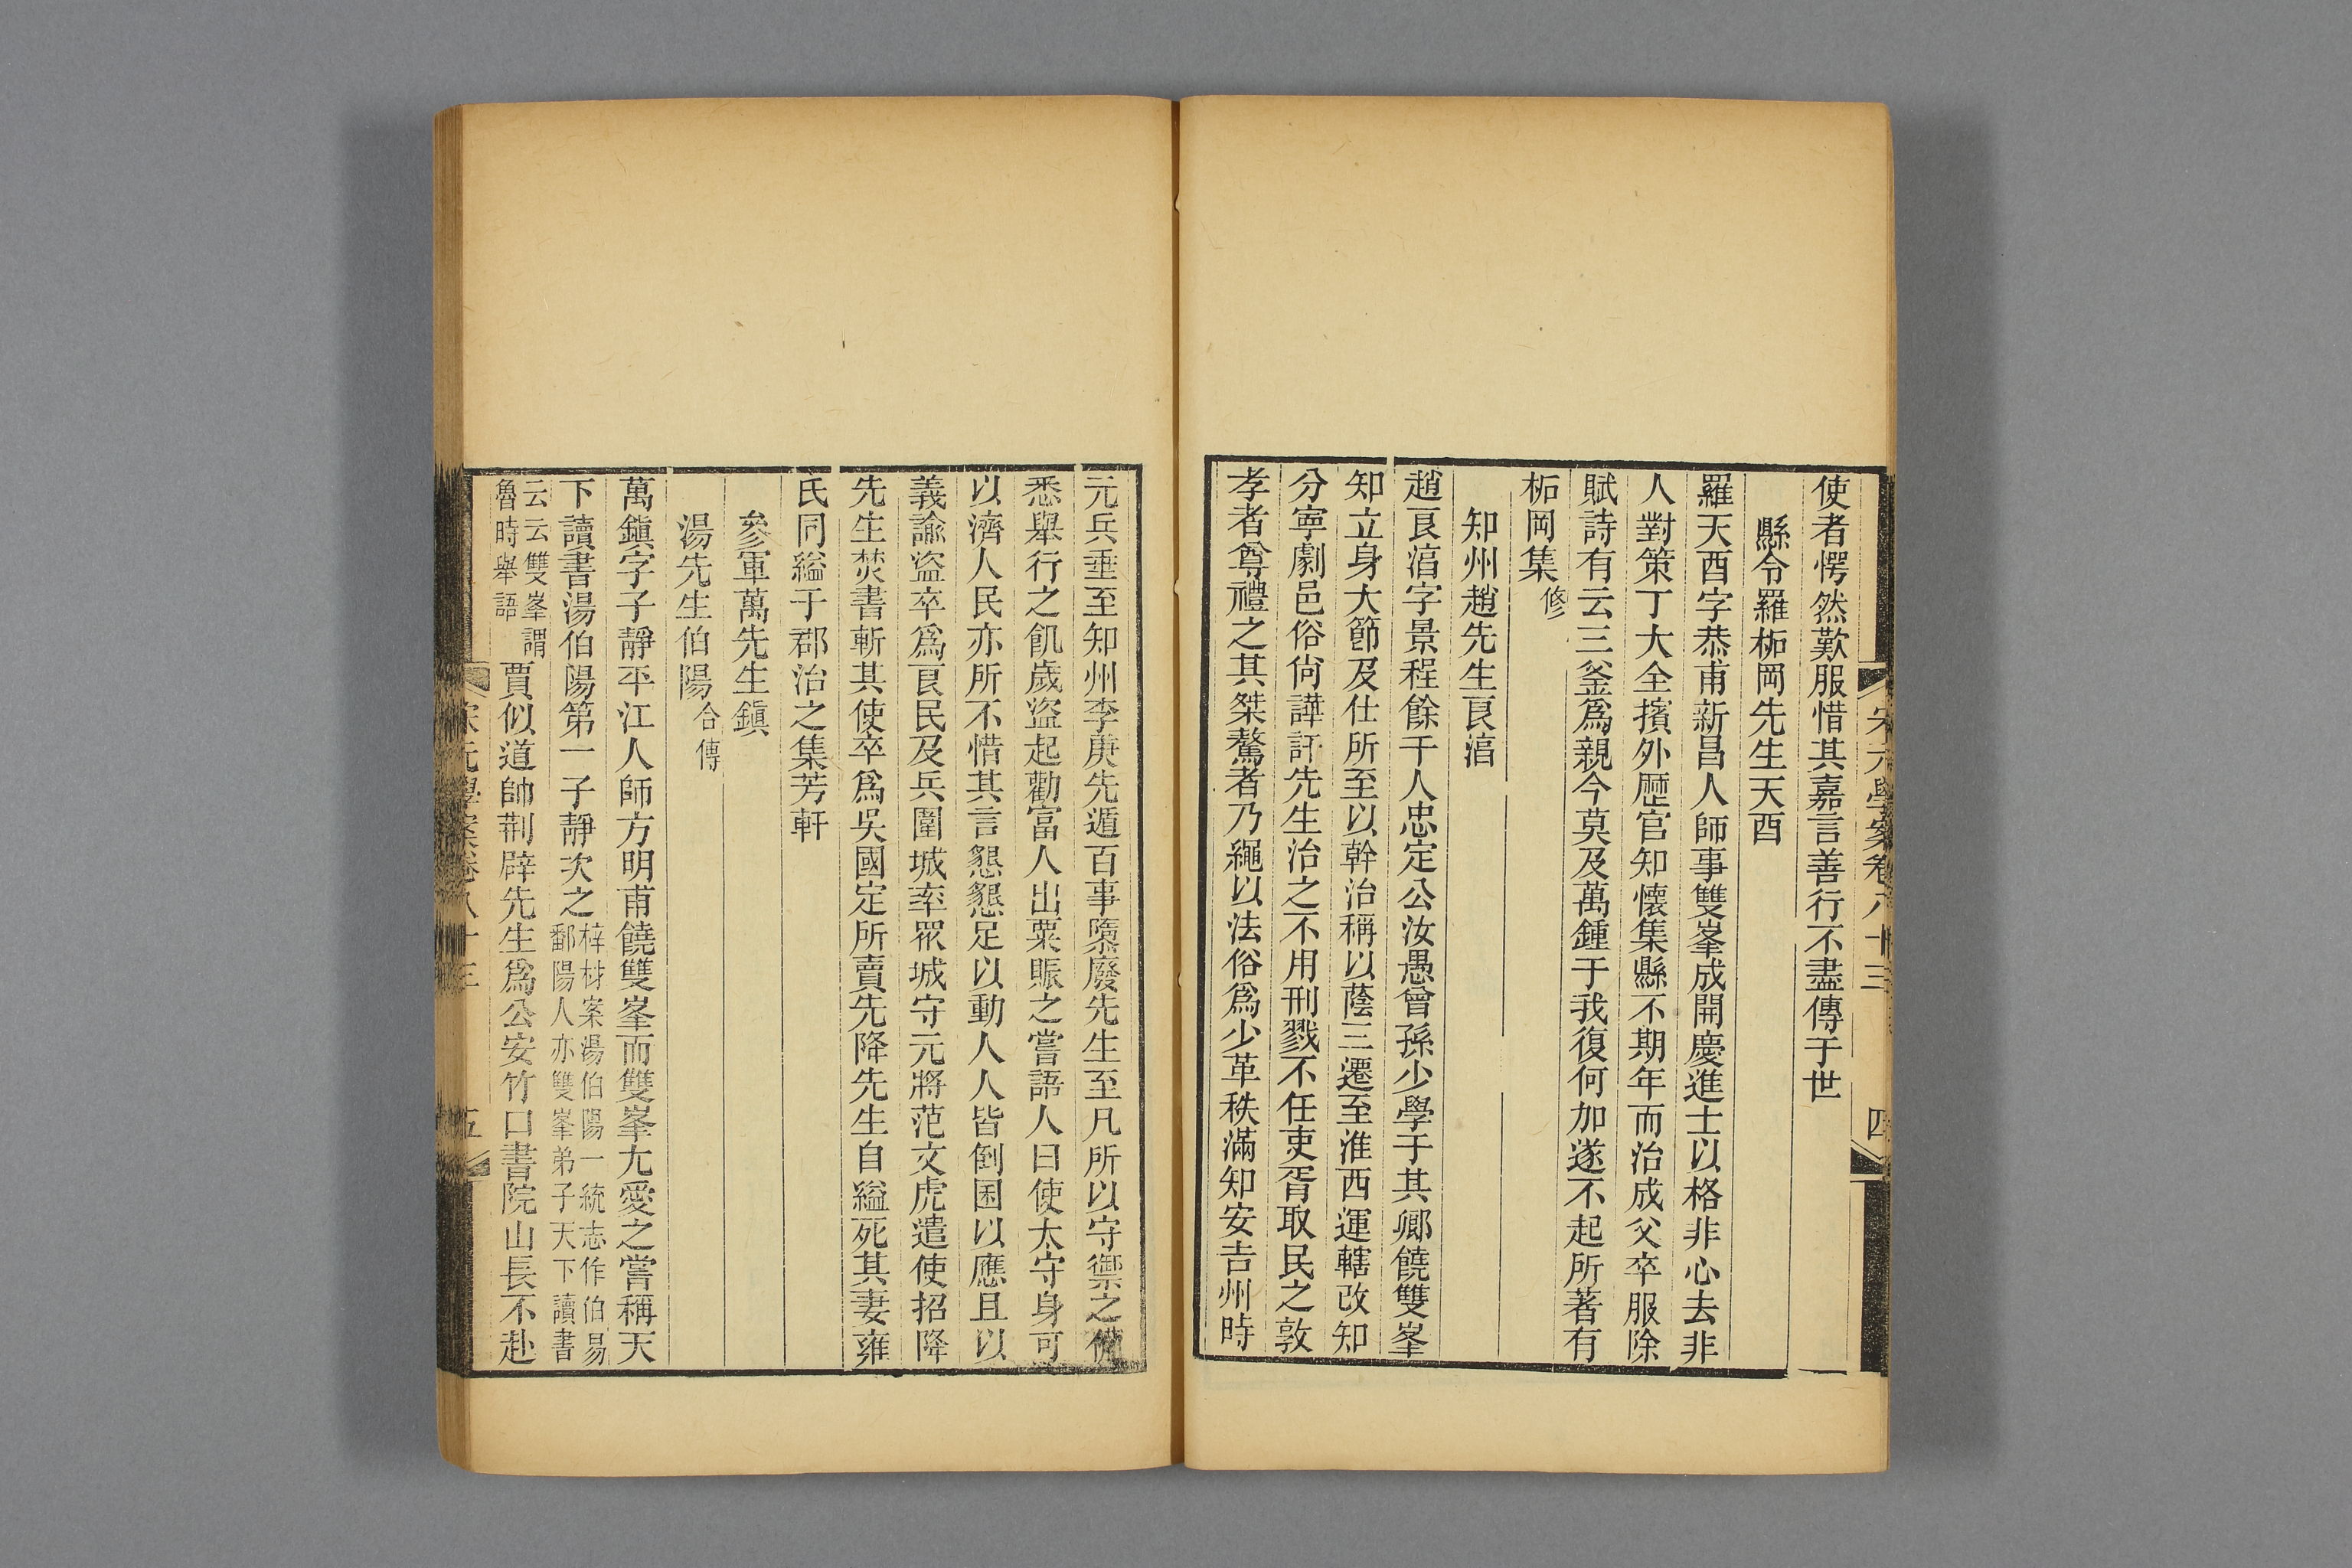 宋元學案卷八十三 四
使者愕然歎服惜其嘉言善行不盡傳于世
縣令羅柘岡先生天酉
羅天酉字恭甫新昌人師事雙峯成開慶進士以格非心去非
人對策丁大全擯外歷官知懷集縣不期年而治成父卒服除
賦詩有云三釜爲親今莫及萬鍾于我復何加遂不起所著有
柘岡集修
知州趙先生良淳
趙良淳字景程餘干人忠定公汝愚曾孫少學于其鄉饒雙峯
知立身大節及仕所至以幹治稱以蔭三遷至淮西運轄改知
分寧劇邑俗尙譁訐先生治之不用刑戮不任吏胥取民之敦
孝者尊禮之其桀驁者乃繩以法俗爲少革秩滿知安吉州時
元兵垂至知州李庚先遁百事隳廢先生至凡所以守禦之備
悉舉行之飢歲盜起勸富人出粟賑之嘗語人曰使太守身可
以濟人民亦所不惜其言懇懇足以動人人皆倒囷以應且以
義諭盜卒爲良民及兵圍城率眾城守元將范文虎遣使招降
先生焚書斬其使卒爲吳國定所賣先降先生自縊死其妻雍
氏同縊于郡治之集芳軒
參軍萬先生鎮
湯先生伯陽合傳
萬鎮字子靜平江人師方明甫饒雙峯而雙峯尢愛之嘗稱天
下讀書湯伯陽第一子靜次之梓材案湯伯陽一統志作伯易
鄱陽人亦雙峯弟子天下讀書
云云雙峯謂
魯時舉語賈似道帥荆辟先生爲公安竹口書院山長不赴
宋元學案卷八十三 五